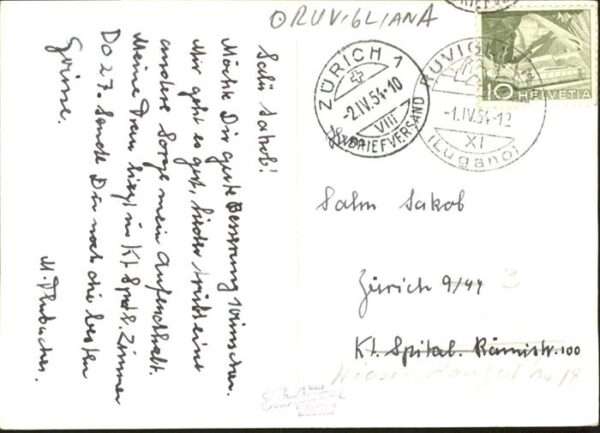 ORUVIGLIANA
ZÜRICH 1
-2.IV.54-10
VIII
BRIEFVERSAND
RUVIGLIANA
-1.IV.54-12
XI
(Lugano)
10 HELVETIA
Salü Sakob!
Möchte Dir gute Besserung wünschen.
Mir geht es gut, leider trübt eine
andere Sorge mein Aufenthalt.
Meine Frau liegt im Kt. Spital. Zimmer
Do 27. Sende Dir noch die besten
Grüsse.
Salm Sakob
Zürich 9/44
Kt. Spital. Rämistr. 100